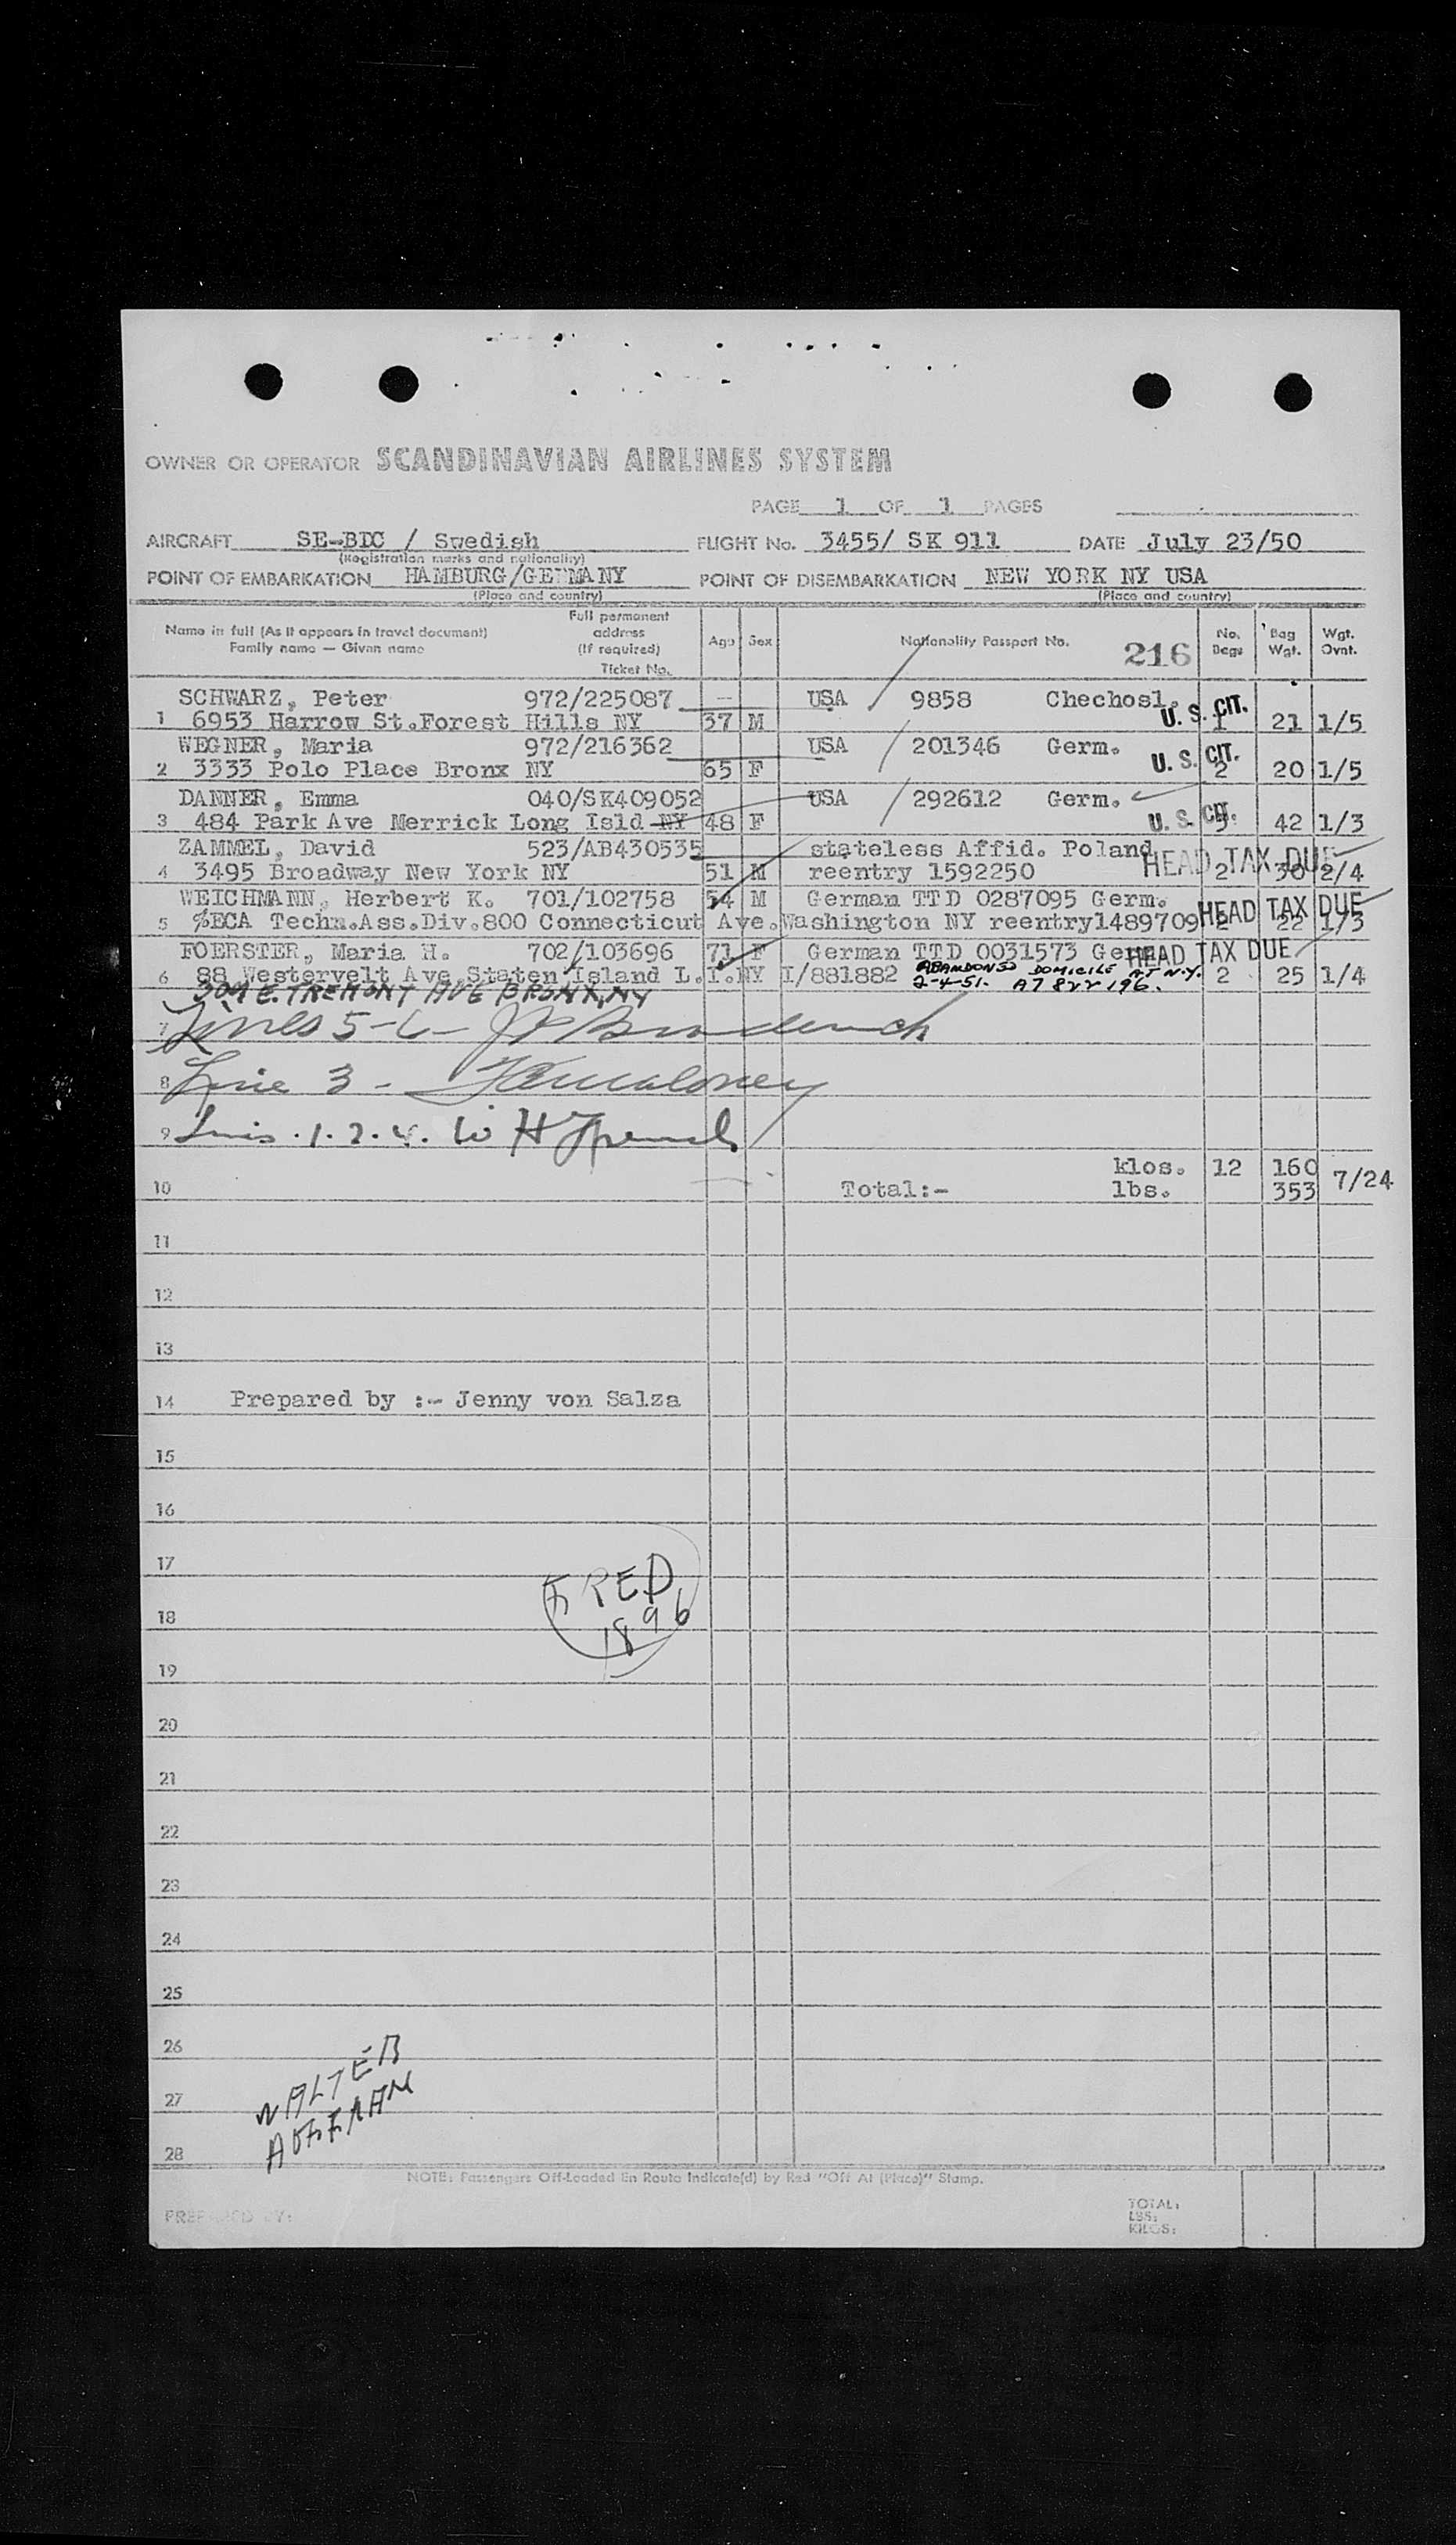 OWNER OR OPERATOR SCANDINAVIAN AIRLINES SYSTEM
PAGE 1 OF 1 PAGES
AIRCRAFT SE-BDC / Swedish FLIGHT No. 3455/ SK 911 DATE July 23/50
(Registration marks and nationality)
POINT OF EMBARKATION HAMBURG/GERMANY POINT OF DISEMBARKATION NEW YORK NY USA
(Place and country) (Place and country)
Name in full (As it appears in travel document) Family name — Given name Full permanent address (If required) Ticket No. Age Sex Nationality Passport No. 216 No. Bags Bag Wgt. Wgt. Ovnt.
SCHWARZ, Peter 972/225087 — USA 9858 Chechosl. U. S. CIT.
1 6953 Harrow St.Forest Hills NY 37 M 1 21 1/5
WEGNER, Maria 972/216362 USA 201346 Germ. U. S. CIT.
2 3333 Polo Place Bronx NY 65 F 2 20 1/5
DANNER, Emma 040/SK409052 USA 292612 Germ. U. S. CIT.
3 484 Park Ave Merrick Long Isld NY 48 F 3 42 1/3
ZAMMEL, David 523/AB430535 stateless Affid. Poland HEAD TAX DUE
4 3495 Broadway New York NY 51 M reentry 1592250 2 30 2/4
WEICHMANN, Herbert K. 701/102758 54 M German TTD 0287095 Germ. HEAD TAX DUE
5 %ECA Techn.Ass.Div.800 Connecticut Ave.Washington NY reentry1489709 2 22 1/3
FOERSTER, Maria H. 702/103696 71 F German TTD 0031573 Germ. HEAD TAX DUE
6 88 Westervelt Ave Staten Island L.I.NY I/881882 ABANDONED DOMICILE AT N.Y. 2-4-51. A7 822 196. 2 25 1/4
309 E. TREMONT AVE BRONX, NY
7 Lines 5-6-
8 Line 3 - Maloney
9 Lines .1.2.4. W H French
klos. 12 160 7/24
10 Total:- lbs. 353
11
12
13
14 Prepared by :- Jenny von Salza
15
16
17 FRED
18 1896
19
20
21
22
23
24
25
26 WALTER
27
28
NOTE: Passengers Off-Loaded En Route Indicate(d) by Red "Off At (Place)" Stamp.
PREPARED BY: TOTAL:
LBS:
KILOS: